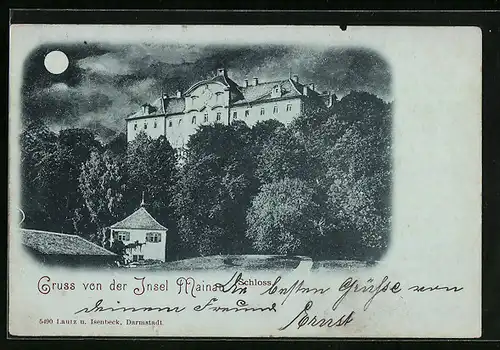 Gruss von der Insel Mainau, Schloss
Die besten Grüsse von
deinem Freunde
Ernst
5490 Lautz u. Isenbeck, Darmstadt.